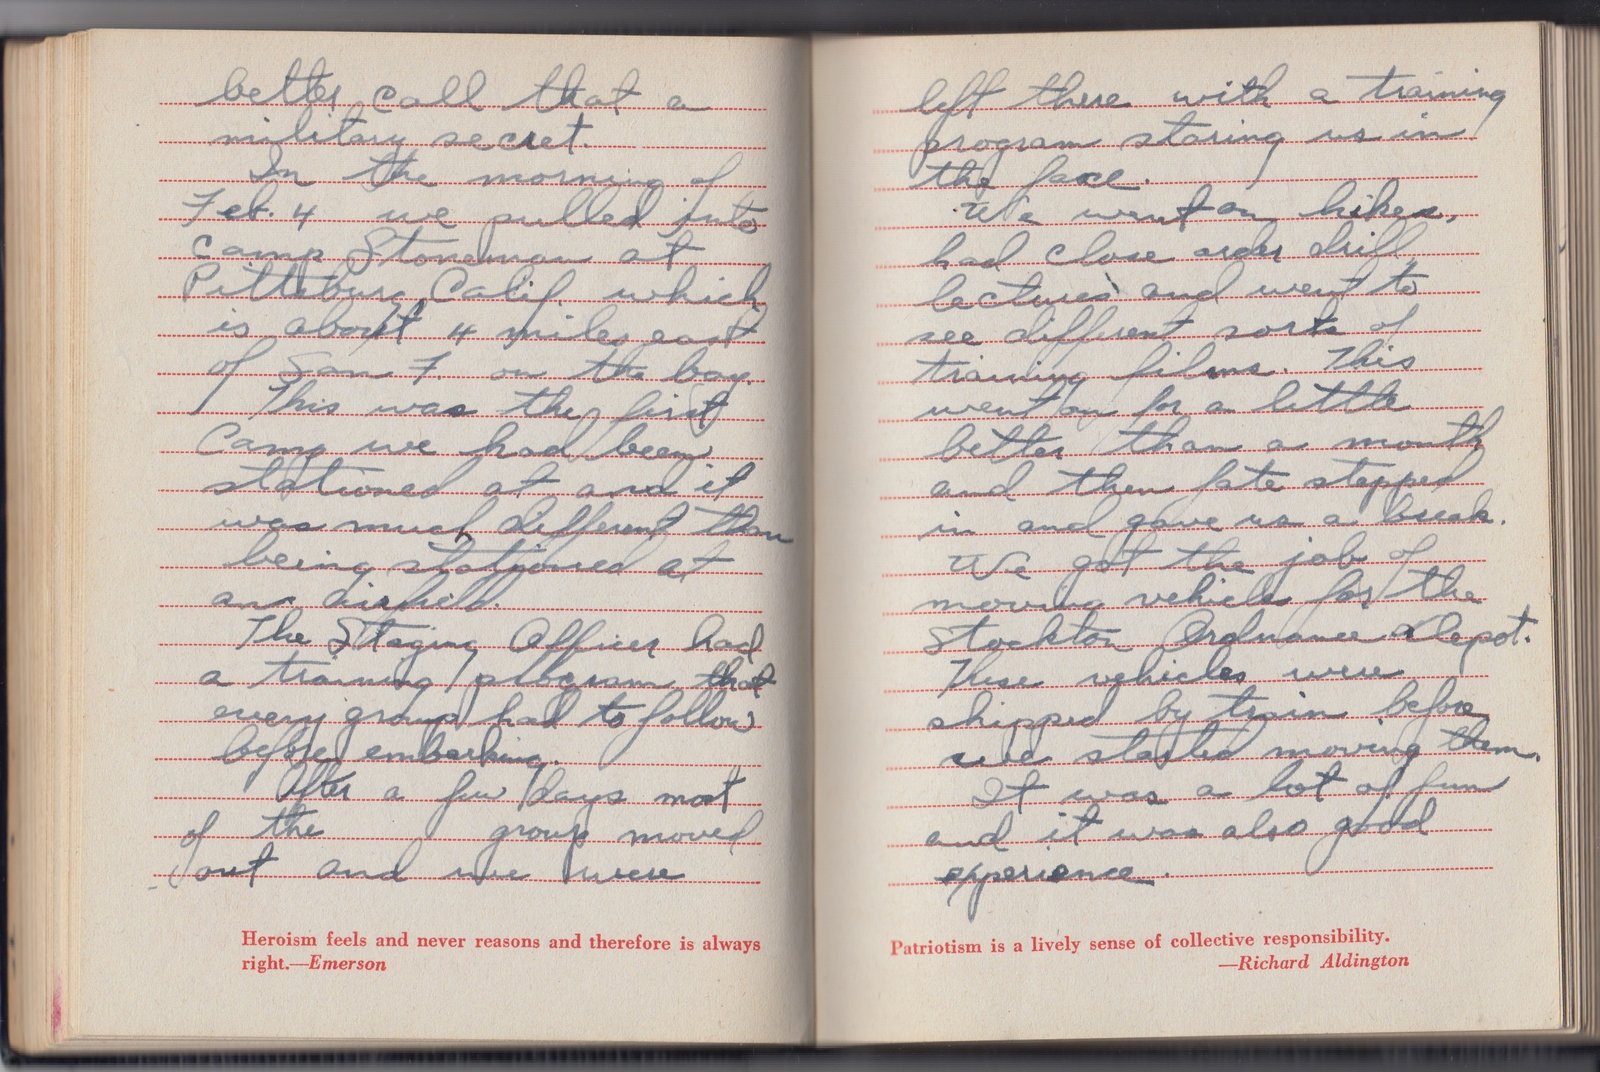 better call that a
military secret.
In the morning of
Feb. 4 we pulled into
Camp Stoneman at
Pittsburg, Calif. which
is about 4 miles east
of San F. on the bay.
This was the first
Camp we had been
stationed at and it
was much different than
being stationed at
an airfield.
The Staging Officer had
a training program that
every group had to follow
before embarking.
After a few days most
of the group moved
out and we were
Heroism feels and never reasons and therefore is always
right.—Emerson
left there with a training
program staring us in
the face.
We went on hikes,
had close order drill,
lectures and went to
see different sorts of
training films. This
went on for a little
better than a month
and then fate stepped
in and gave us a break.
We got the job of
moving vehicles for the
Stockton Ordnance Depot.
These vehicles were
shipped by train before
we started moving them.
It was a lot of fun
and it was also good
experience.
Patriotism is a lively sense of collective responsibility.
—Richard Aldington